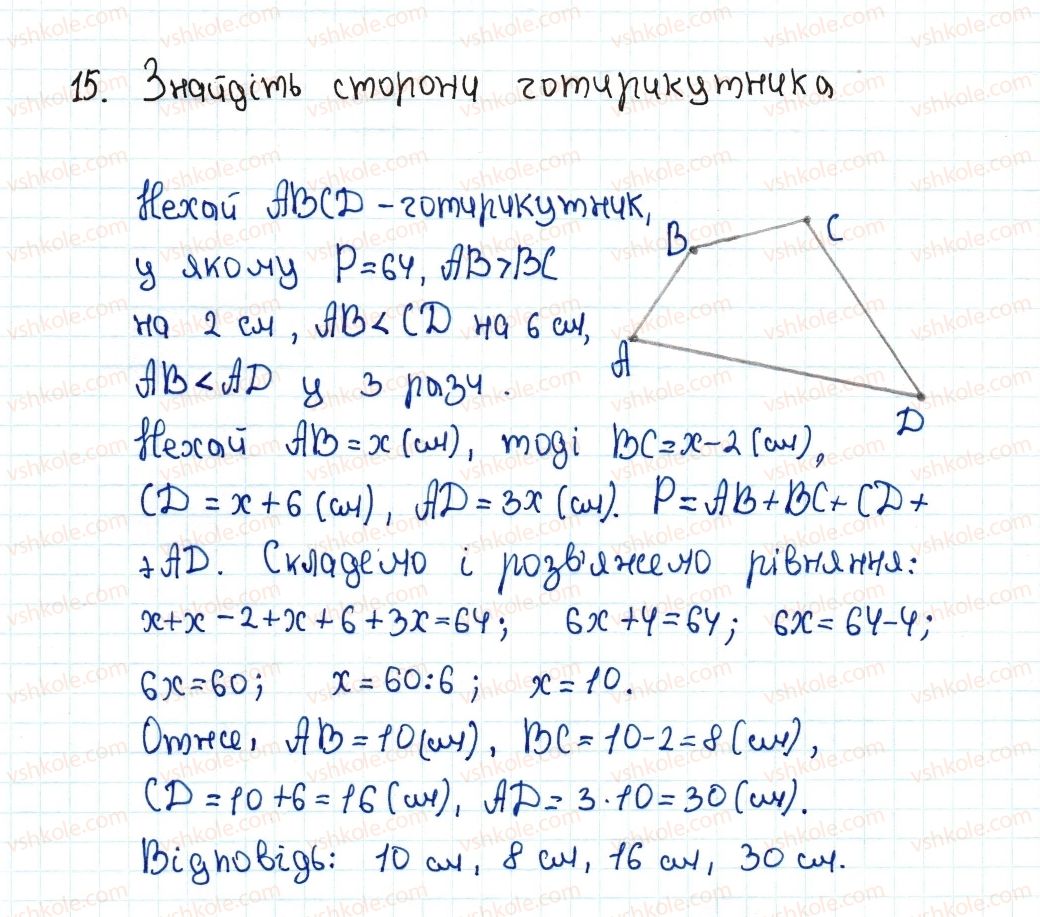 15. Знайдіть сторони чотирикутника
Нехай ABCD - чотирикутник,
у якому P=64, AB>BC
на 2 см, AB<CD на 6 см,
AB<AD у 3 рази.
B
C
A
D
Нехай AB=x(см), тоді BC=x-2(см),
CD=x+6(см), AD=3x(см). P=AB+BC+CD+
+AD. Складемо і розв'яжемо рівняння:
x+x-2+x+6+3x=64; 6x+4=64; 6x=64-4;
6x=60; x=60:6; x=10.
Отже, AB=10(см), BC=10-2=8(см),
CD=10+6=16(см), AD=3·10=30(см).
Відповідь: 10 см, 8 см, 16 см, 30 см.
vshkole.com